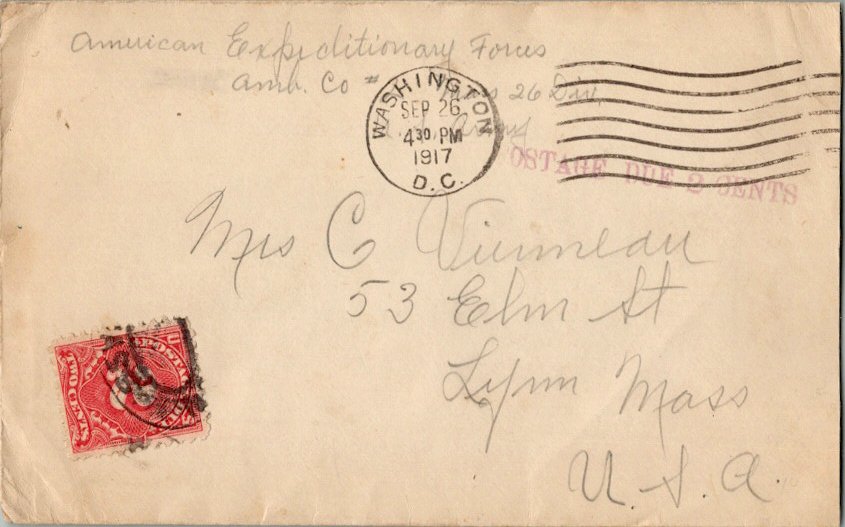 American Expeditionary Forces
Amb. Co # 26 Div.
Army
WASHINGTON
SEP 26
4 30 PM
1917
D.C.
POSTAGE DUE 2 CENTS
Mrs C Viemeau
53 Elm St
Lynn Mass
U.S.A.
POSTAGE DUE
TWO CENTS
2